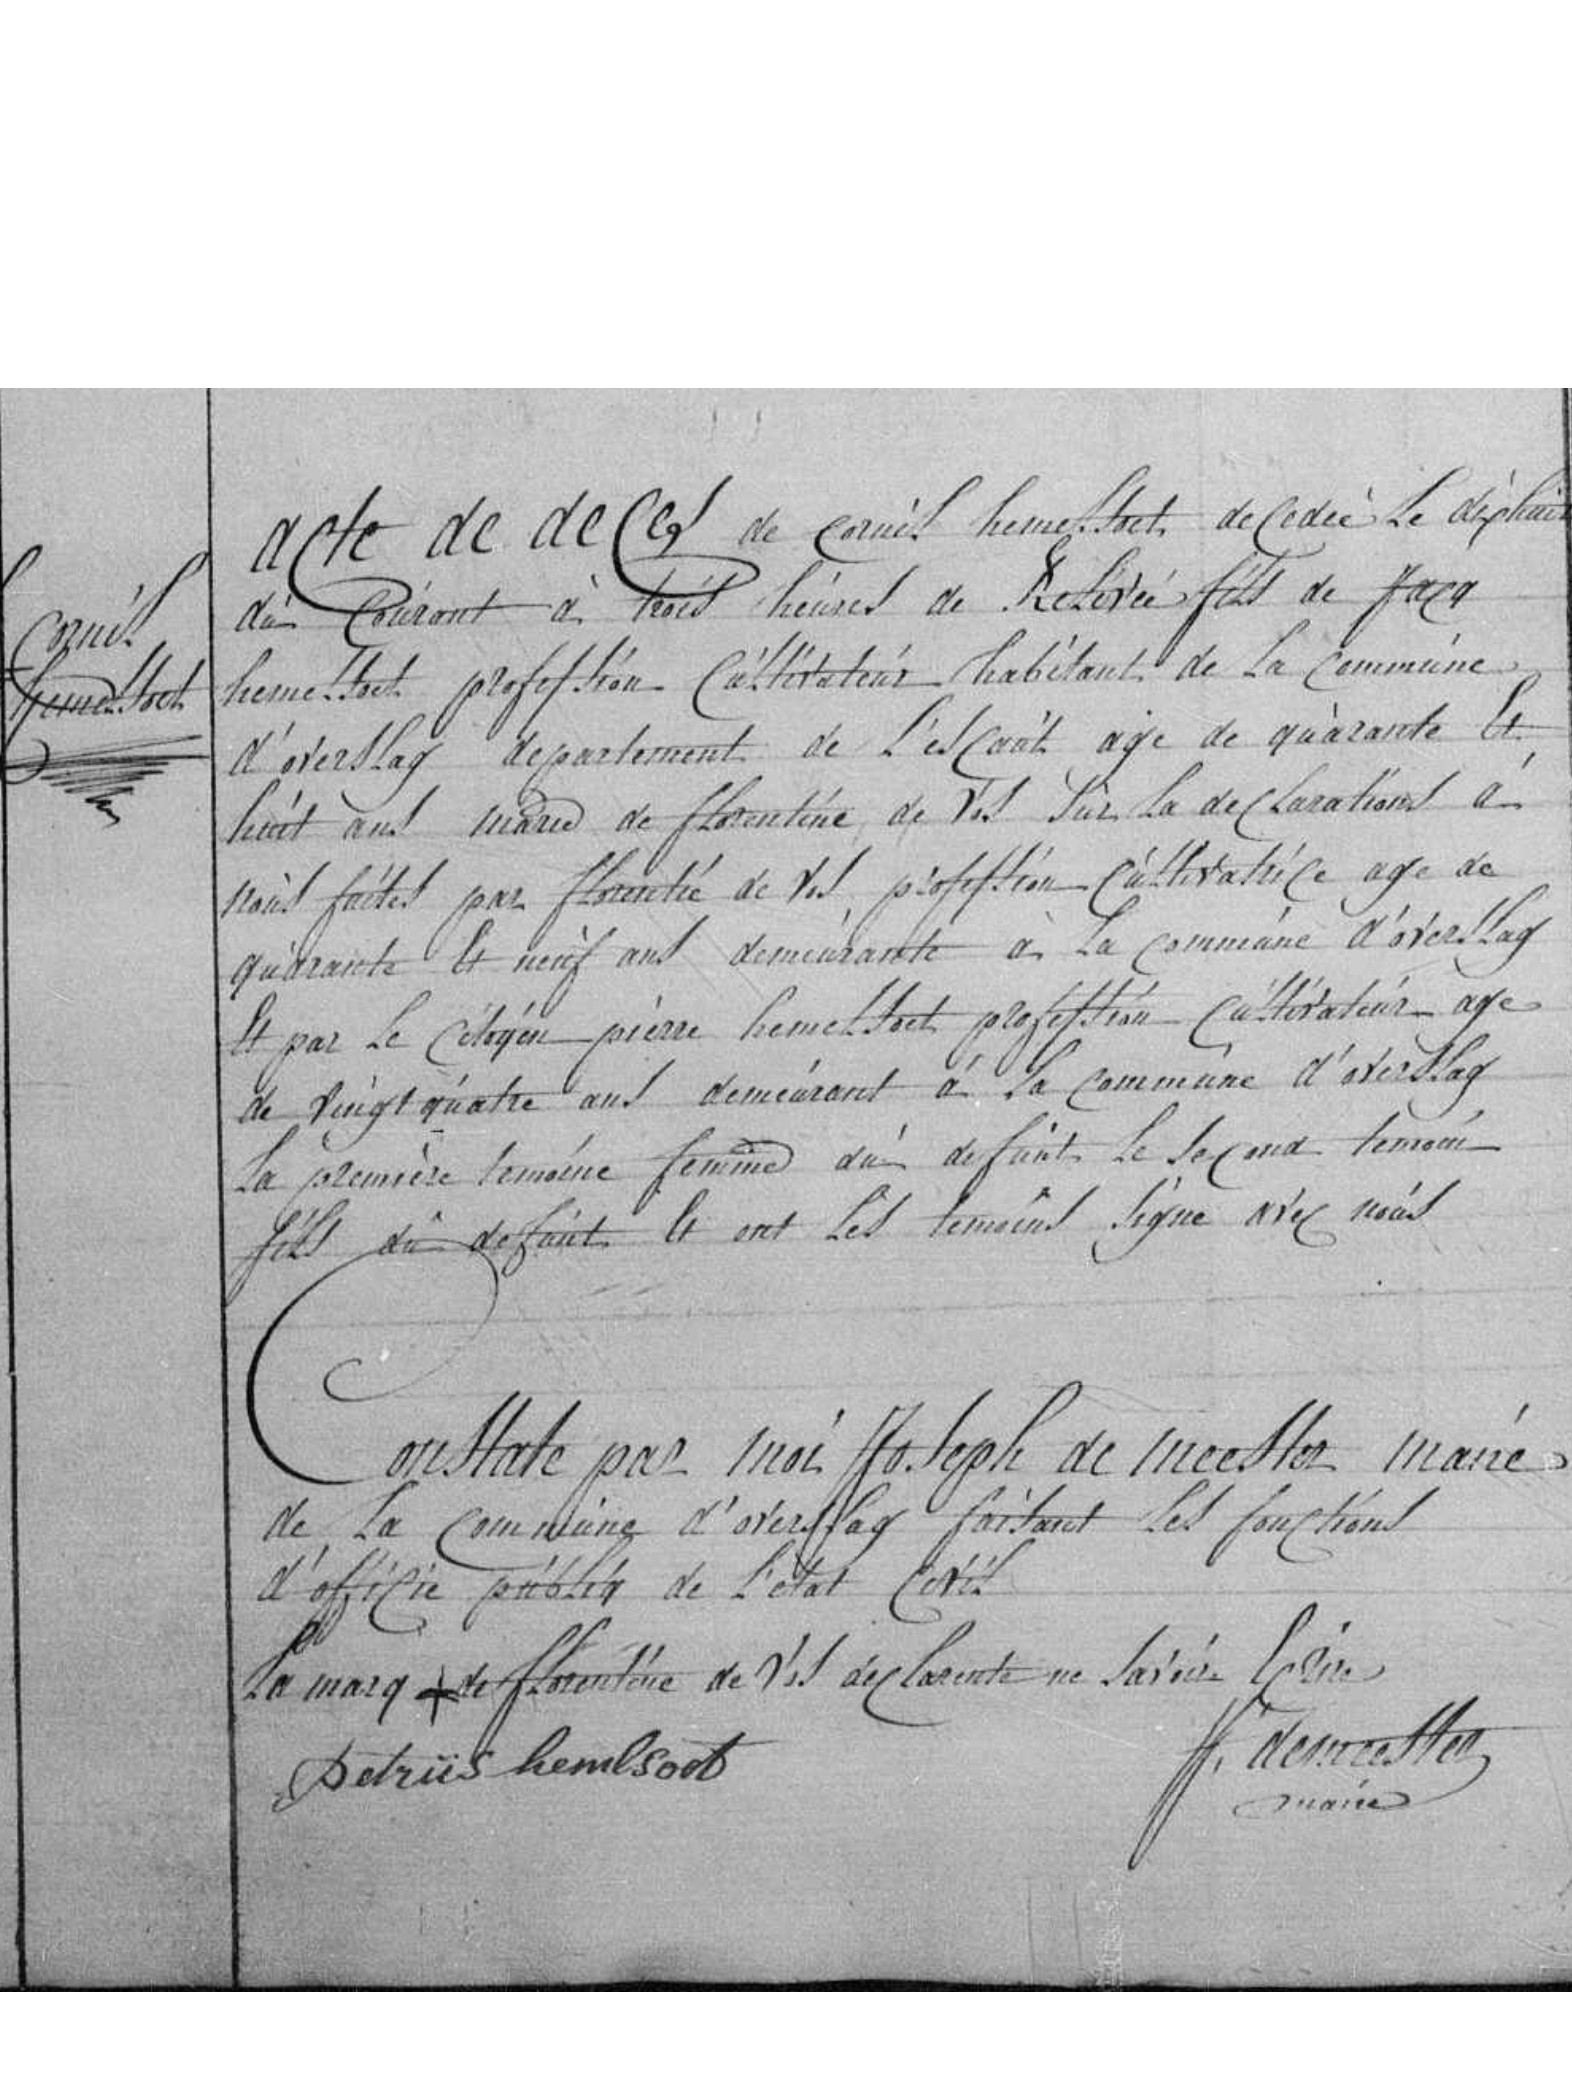 Cornél
hemelsoet
acte de decés de cornél hemelsoet decedeé le dixhuit
dú Coúrant à trois heúres de Relevée féls de Jacq
hemelsoet professión Cúltivateúr habétant de la commúne
d'overslag departement de L'escaút age de qúarante Et
húit ans marie de florentine de vos súr la declarations á
noús faites par florentie de vos professión cúltivatrice age de
qúarante Et neúf ans demeúrante à la commúne d'overslag
Et par le Cétoyén piérre hemelsoet professión cúltivateúr age
de vingt qúatre ans demeúrant á la commúne d'overslag
la première temoine femme dú defúnt le second temoin
féls dú defúnt Et ont les temoins signe avec noús
Constate par moi Joseph de meester maire
de la commúne d'overslag faisant les fonctions
d'officie públiq de L'etat Civil
la marq + de florentine de vos declarente ne savoir Ecrire
petrús hemelsoet
J. demeester
maire